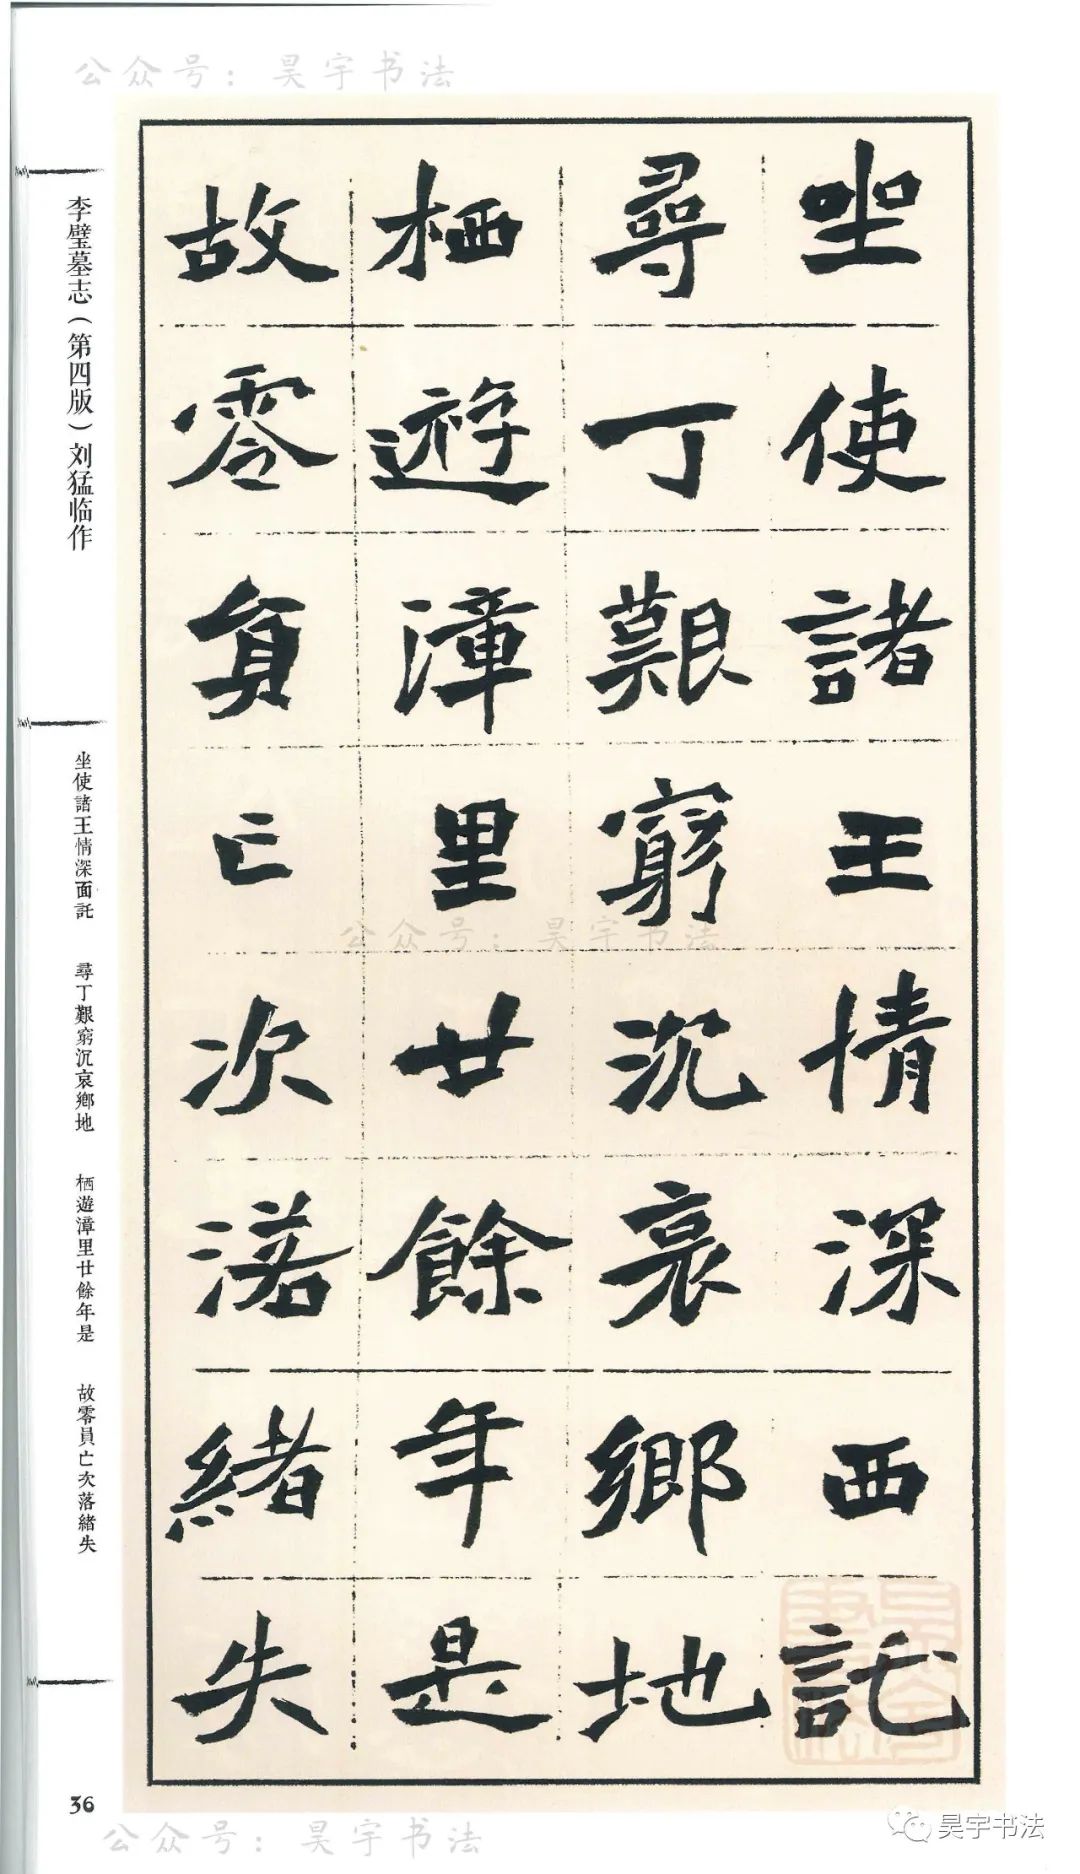 公众号：昊宇书法
坐使諸王情深西託
尋丁艱窮沉哀鄉地
栖遊漳里廿餘年是
故零員亡次落緒失
李璧墓志（第四版）刘猛临作
坐使諸王情深面託　尋丁艱窮沉哀鄉地　栖遊漳里廿餘年是　故零員亡次落緒失
公众号：昊宇书法
36
公众号：昊宇书法
昊宇书法